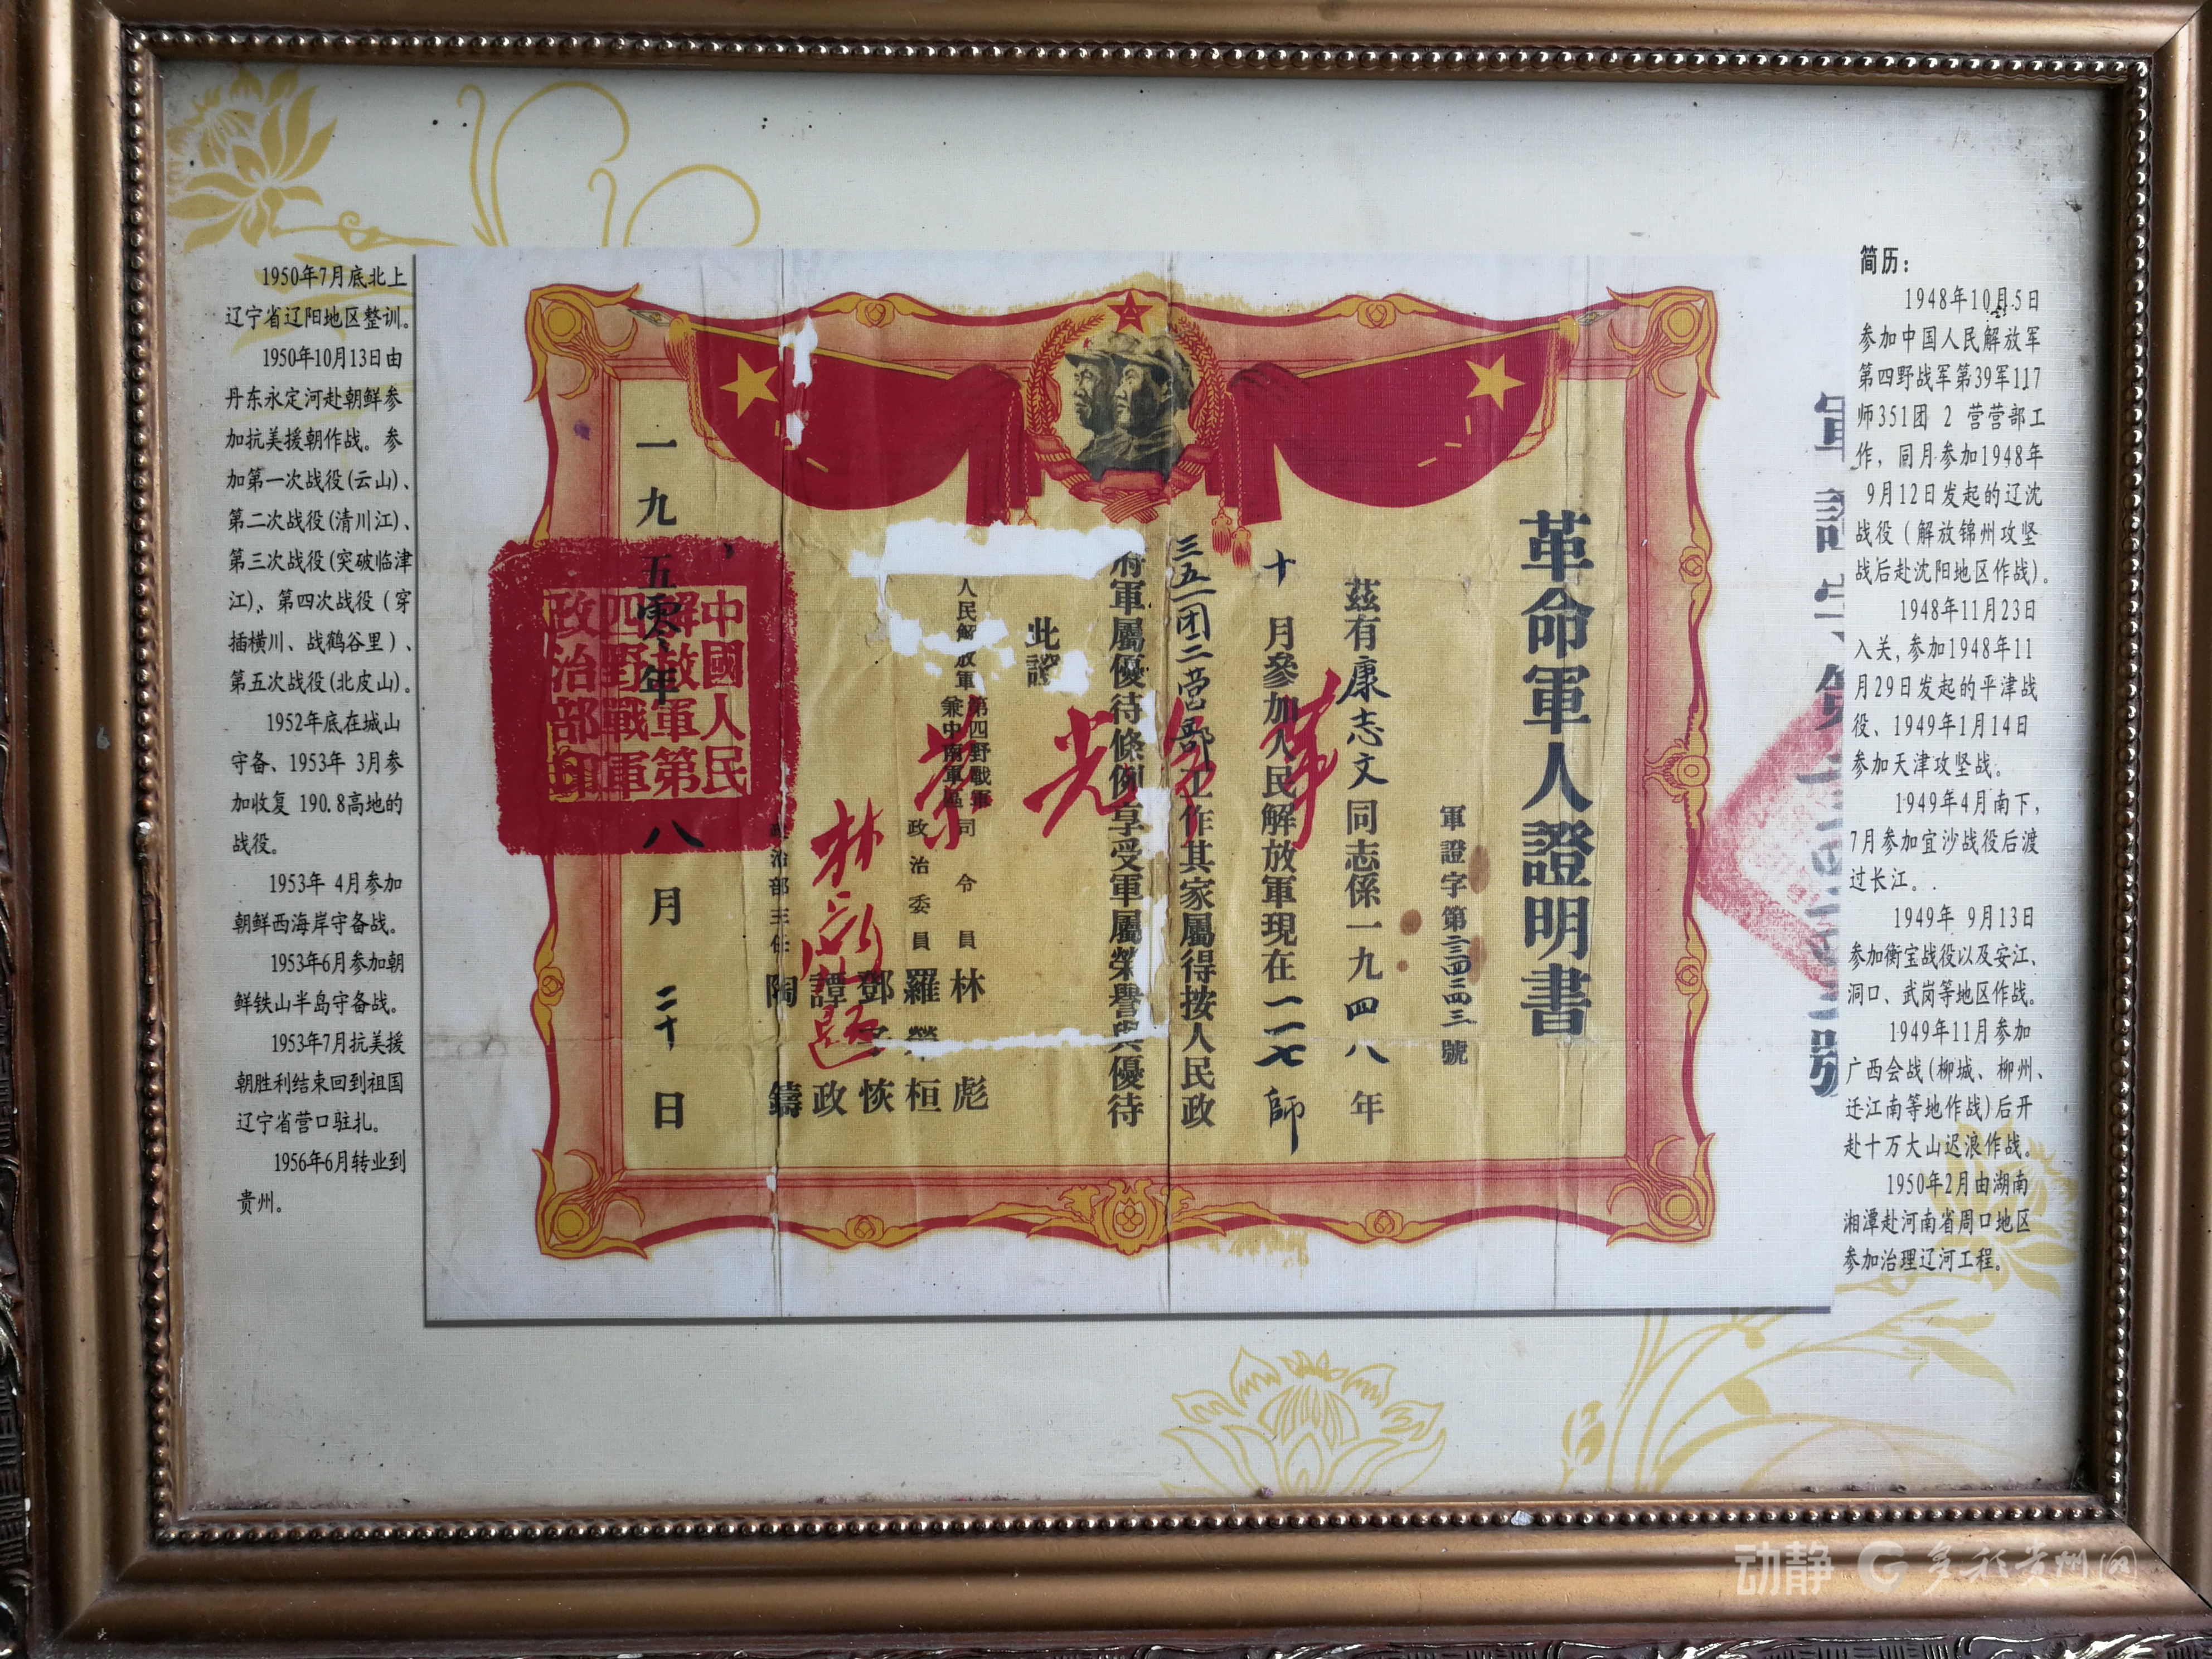 简历：
1948年10月5日
参加中国人民解放军
第四野战军第39军117
师351团 2 营营部工
作，同月参加1948年
9月12日发起的辽沈
战役（解放锦州攻坚
战后赴沈阳地区作战)。
1948年11月23日
入关,参加1948年11
月29日发起的平津战
役、1949年1月14日
参加天津攻坚战。
1949年4月南下，
7月参加宜沙战役后渡
过长江。
1949年 9月13日
参加衡宝战役以及安江、
洞口、武岗等地区作战。
1949年11月参加
广西会战(柳城、柳州、
迁江南等地作战)后开
赴十万大山迟浪作战。
1950年2月由湖南
湘潭赴河南省周口地区
参加治理辽河工程。
革命軍人證明書
軍證字第 號
茲有康志文同志係一九四八年
十月參加人民解放軍現在一一七師
三五一团二营部工作其家屬得按人民政
府軍屬優待條例享受軍屬榮譽與優待
此證
革命光荣
林彪題
人民解放軍
第四野戰軍
兼中南軍區
司令員 林彪
政治委員 羅榮桓
鄧子恢
譚政
政治部主任 陶鑄
一九五零年八月二十日
中國人民
解放軍第
四野戰軍
政治部印
1950年7月底北上
辽宁省辽阳地区整训。
1950年10月13日由
丹东永定河赴朝鲜参
加抗美援朝作战。参
加第一次战役(云山)、
第二次战役(清川江)、
第三次战役(突破临津
江)、第四次战役（穿
插横川、战鹤谷里）、
第五次战役(北皮山)。
1952年底在城山
守备、1953年 3月参
加收复 190.8高地的
战役。
1953年 4月参加
朝鲜西海岸守备战。
1953年6月参加朝
鲜铁山半岛守备战。
1953年7月抗美援
朝胜利结束回到祖国
辽宁省营口驻扎。
1956年6月转业到
贵州。
动静 多彩贵州网